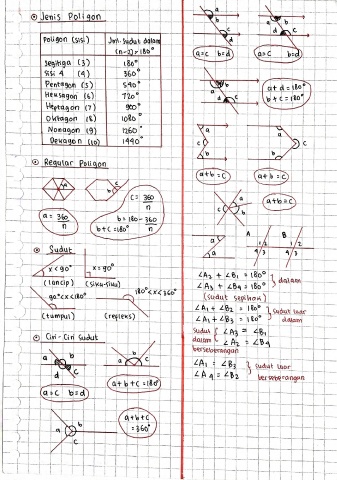 Jenis Poligon
Poligon (sisi) Jml. sudut dalam
(n-2) × 180°
Segitiga (3) 180°
Sisi 4 (4) 360°
Pentagon (5) 540°
Heksagon (6) 720°
Heptagon (7) 900°
Oktagon (8) 1080°
Nonagon (9) 1260°
Dekagon (10) 1440°
Regular Poligon
a
b
c
a = 360
n
c = 360
n
b = 180 - 360
n
b + c = 180°
Sudut
x < 90°
x = 90°
(lancip) (siku-siku)
90° < x < 180°
180° < x < 360°
(tumpul) (refleks)
Ciri-Ciri Sudut
a
b
c
d
a b c
a = c b = d
a + b + c = 180°
a
b
c
a + b + c
= 360°
a
b
c
d
a
b
d
c
a = c b = d
a = c b = d
a
b
d
c
a + d = 180°
b + c = 180°
a
c
b
a
c
b
a + b = c
a + b = c
a
b
c
a + b = c
a
a
A B
1 2
4 3
1 2
4 3
∠A3 + ∠B1 = 180°
∠A3 + ∠B4 = 180°
dalam
(sudut sepihak)
∠A1 + ∠B2 = 180°
∠A1 + ∠B3 = 180°
sudut luar
dalam
sudut
dalam
berseberangan
∠A3 = ∠B1
∠A2 = ∠B4
∠A1 = ∠B3
∠A4 = ∠B2
sudut luar
berseberangan